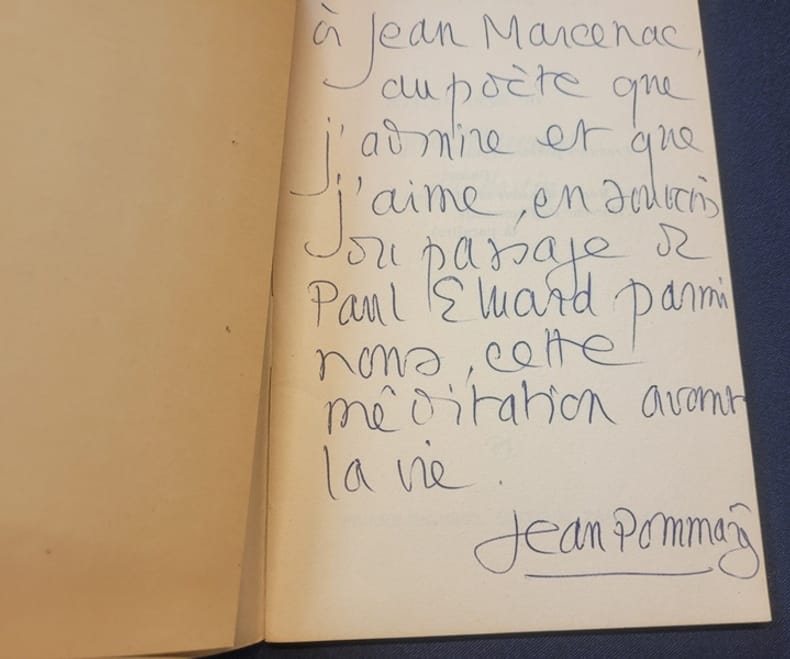 à Jean Marcenac,
au poète que
j'admire et que
j'aime, en souvenir
du passage de
Paul Eluard parmi
nous, cette
méditation avant
la vie.
Jean Pommarg